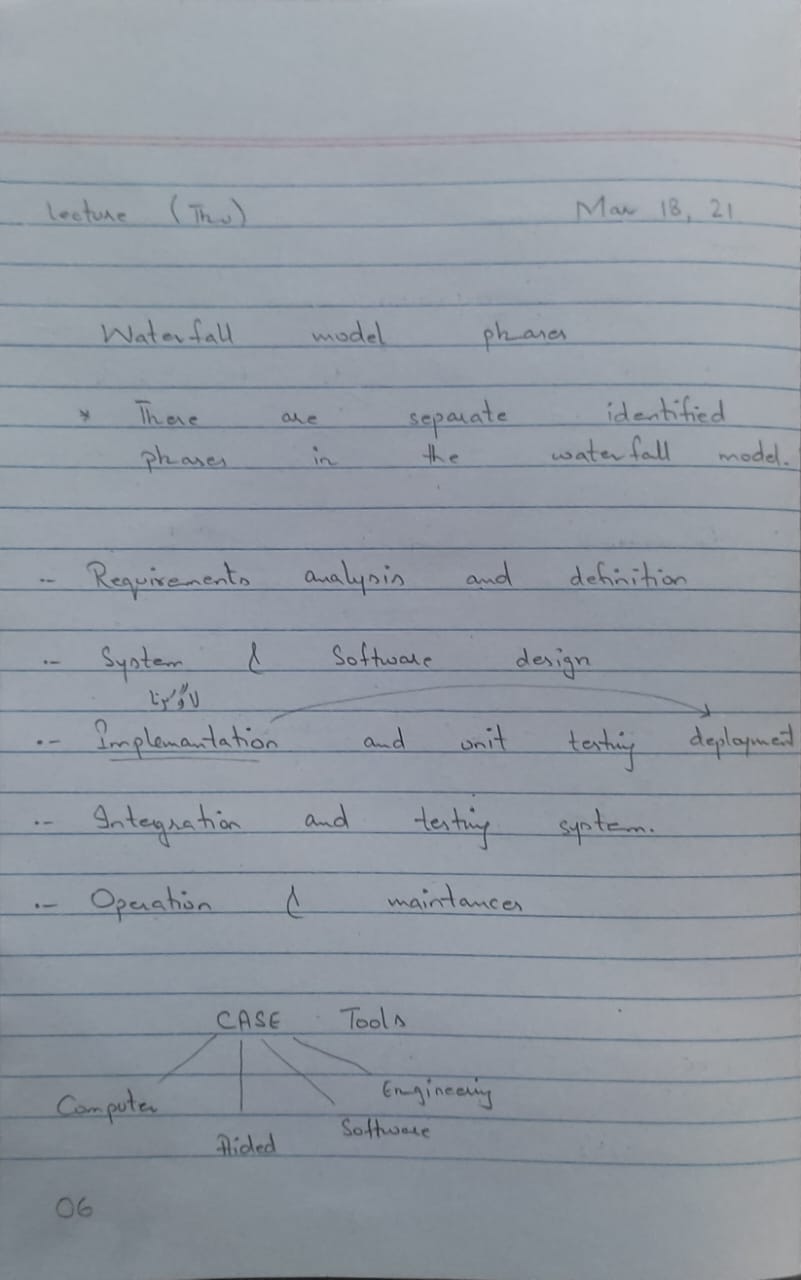 Lecture (Thu) Mar 18, 21
Waterfall model phases
* There are separate identified
phases in the waterfall model.
·– Requirements analysis and definition
·– System & Software design
لاگو کرنا
·– Implemantation and unit testing deployment
·– Integration and testing system.
·– Operation & maintances
CASE Tools
Computer Aided Software Engineering
06